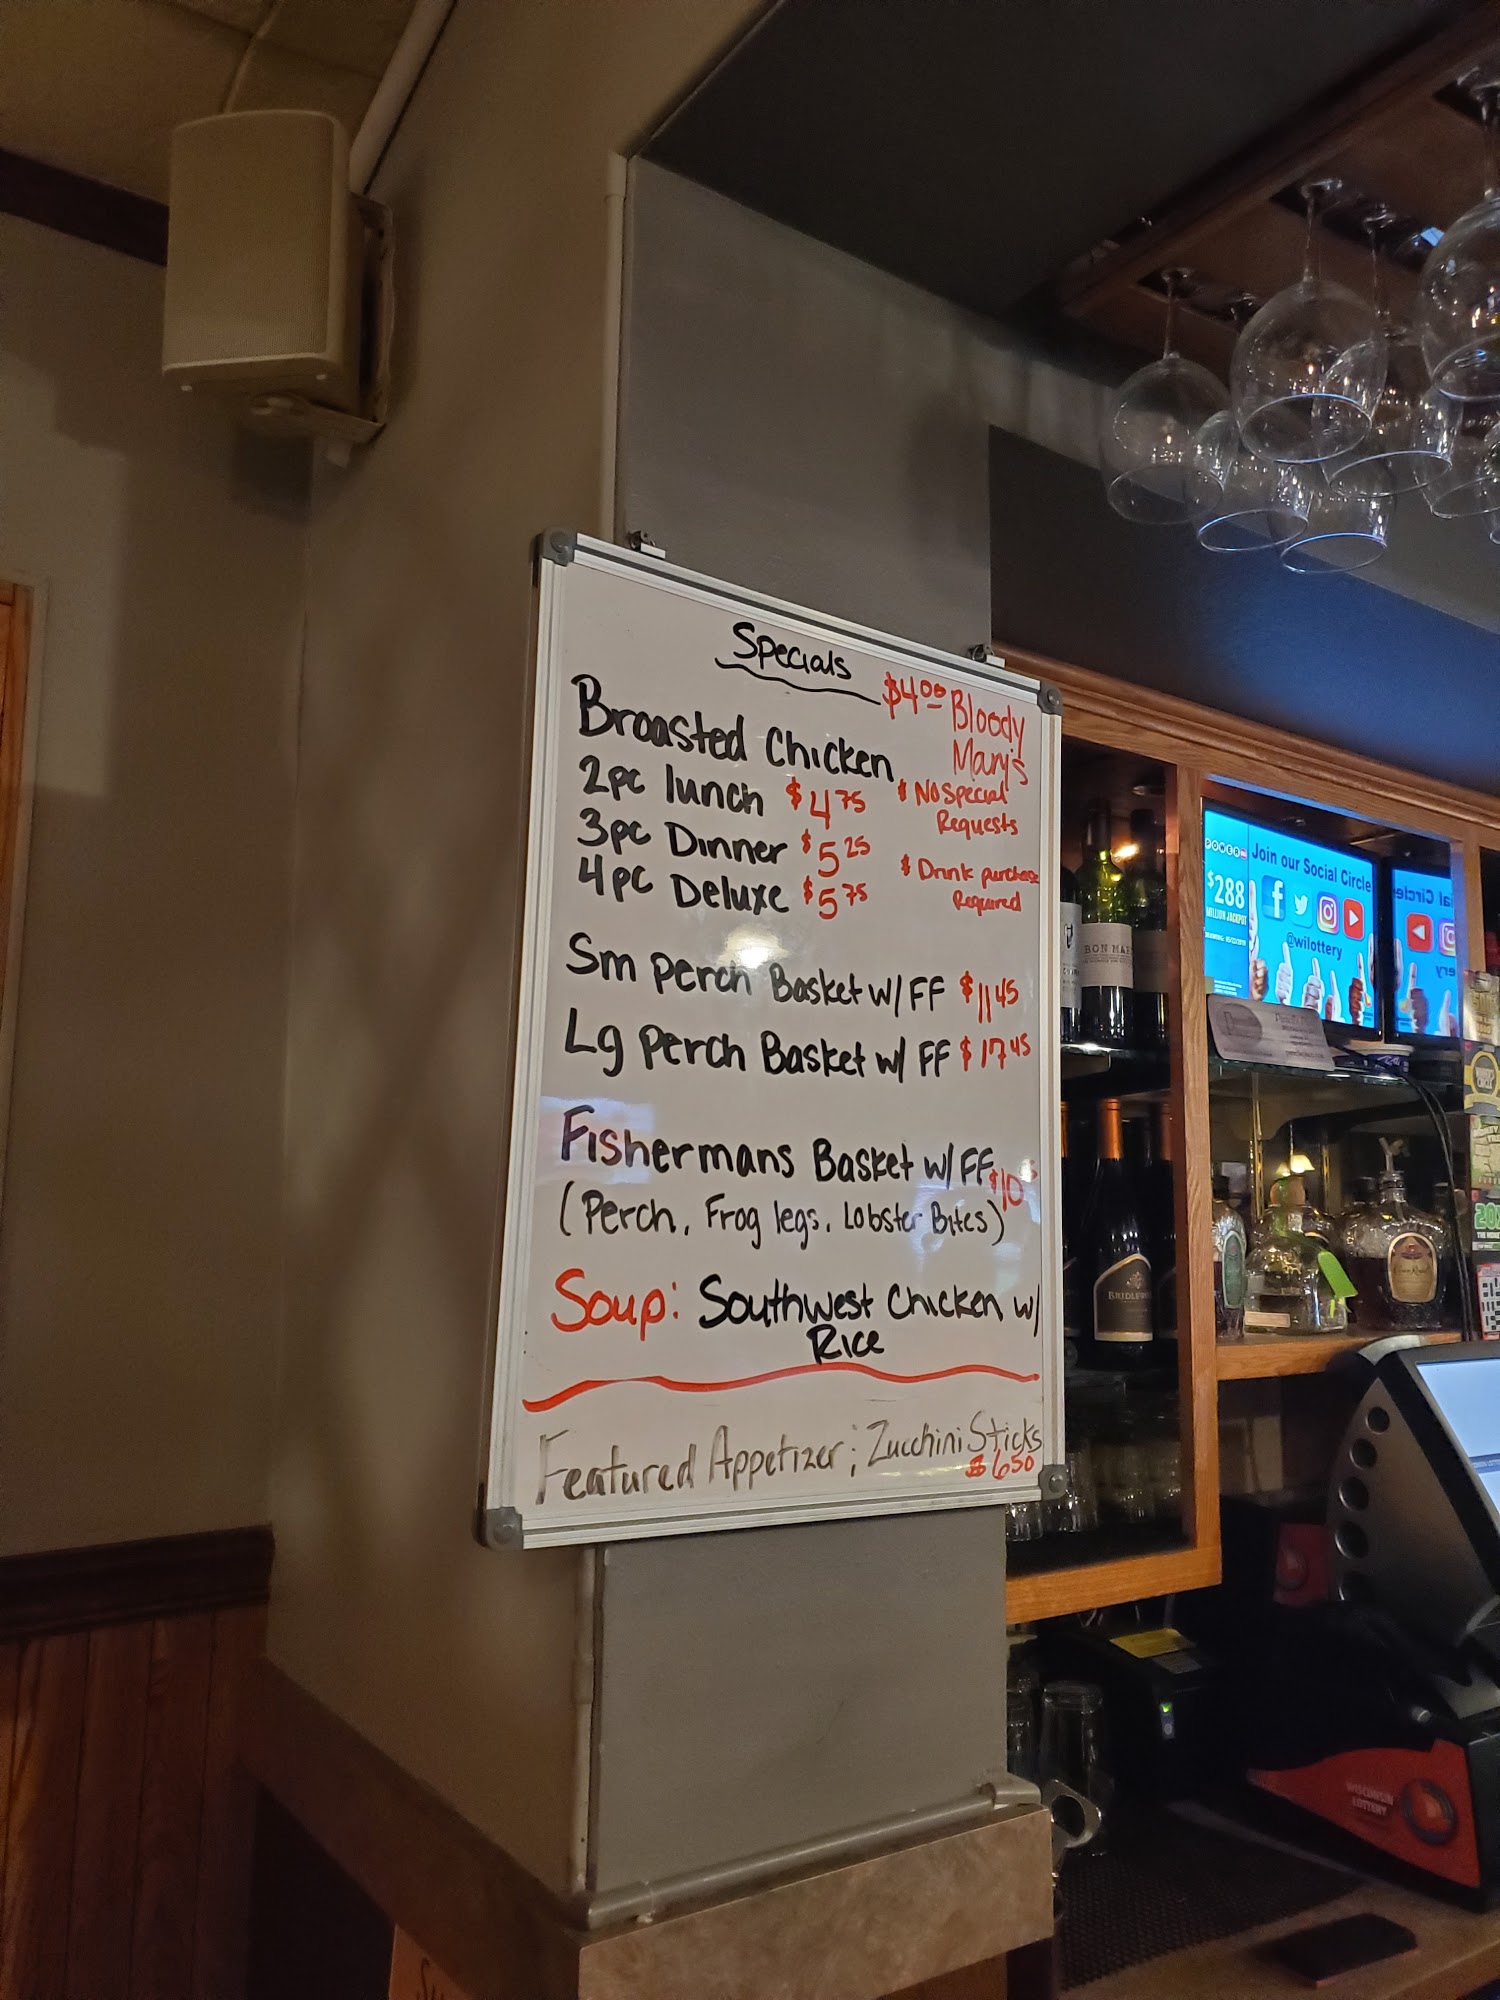 Specials
$4.00 Bloody
Mary's
Broasted Chicken
2pc lunch $4.75
No Special
Requests
3pc Dinner $5.25
Drink purchase
Required
4pc Deluxe $5.75
Sm Perch Basket w/ FF $11.45
Lg Perch Basket w/ FF $17.45
Fishermans Basket w/ FF $10
(Perch, Frog legs, Lobster Bites)
Soup: Southwest Chicken w/
Rice
Featured Appetizer; Zucchini Sticks
$6.50
POWER
$288
MILLION JACKPOT
Join our Social Circle
@wilottery
BON
BRIDL
WISCONSIN
LOTTERY